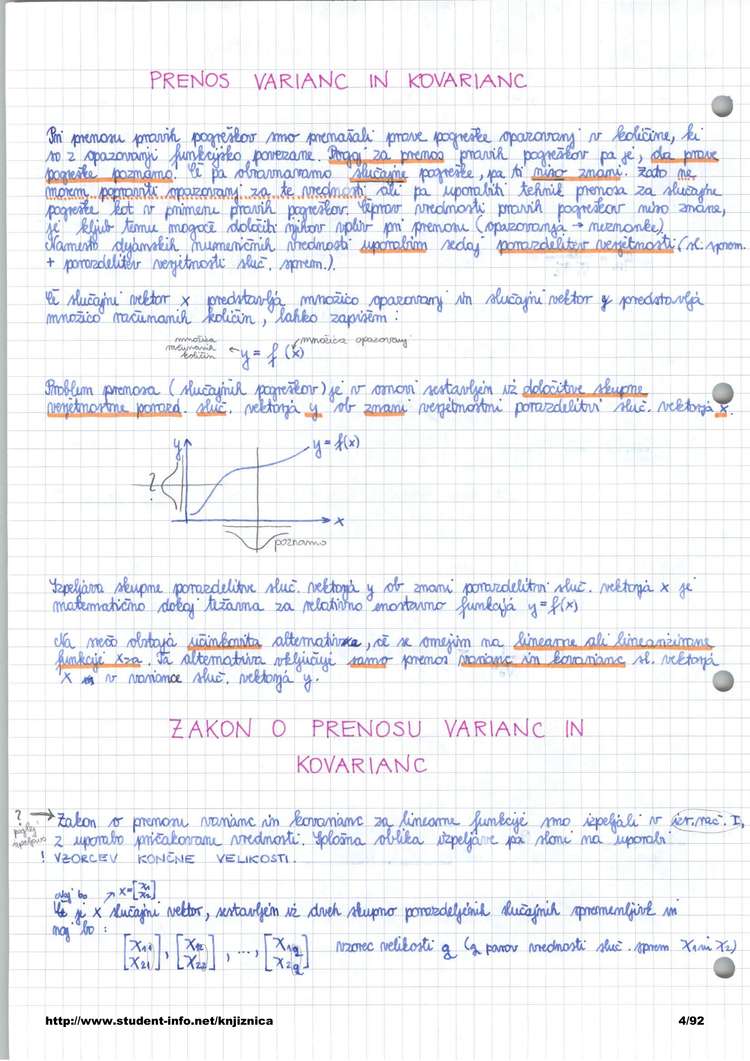 PRENOS VARIANC IN KOVARIANC
Pri prenosu pravih pogreškov smo prenašali prave pogreške opazovanj v količine, ki
so z opazovanji funkcijsko povezane. Pogoj za prenos pravih pogreškov pa je, da prave
pogreške poznamo. Če pa obravnavamo slučajne pogreške, pa ti niso znani. Zato ne
morem popraviti opazovanj za te vrednosti ali pa uporabiti tehnik prenosa za slučajne
pogreške kot v primeru pravih pogreškov. Čeprav vrednosti pravih pogreškov niso znane,
je kljub temu mogoče določiti njihov vpliv pri prenosu (opazovanja → neznanke)
Namesto dejanskih numeričnih vrednosti uporabim sedaj porazdelitev verjetnosti (sl. sprem.
+ porazdelitev verjetnosti sluč. sprem.).
Če slučajni vektor x predstavlja množico opazovanj in slučajni vektor y predstavlja
množico računanih količin, lahko zapišem:
množica
računanih
količin
množica opazovanj
y = f(x)
Problem prenosa (slučajnih pogreškov) je v osnovi sestavljen iz določitve skupne
verjetnostne porazd. sluč. vektorja y ob znani verjetnostni porazdelitvi sluč. vektorja x.
y
y = f(x)
?
x
poznamo
Izpeljava skupne porazdelitve sluč. vektorja y ob znani porazdelitvi sluč. vektorja x je
matematično dokaj težavna za relativno enostavno funkcijo y = f(x)
Na srečo obstaja učinkovita alternativa, če se omejim na linearne ali linearizirane
funkcije x-za. Ta alternativa vključuje samo prenos varianc in kovarianc sl. vektorja
x v variance sluč. vektorja y.
ZAKON O PRENOSU VARIANC IN
KOVARIANC
? → Zakon o prenosu varianc in kovarianc za linearne funkcije smo izpeljali v izr. rač. I,
poglej
izpeljavo
z uporabo pričakovane vrednosti. Splošna oblika izpeljave pa sloni na uporabi
! VZORCEV KONČNE VELIKOSTI.
x = [x1 x2]
naj bo
je x slučajni vektor, sestavljen iz dveh skupno porazdeljenih slučajnih spremenljivk in
naj bo:
[x11 x21], [x12 x22], ..., [x1q x2q] vzorec velikosti q (q parov vrednosti sluč. sprem x1 in x2)
http://www.student-info.net/knjiznica
4/92